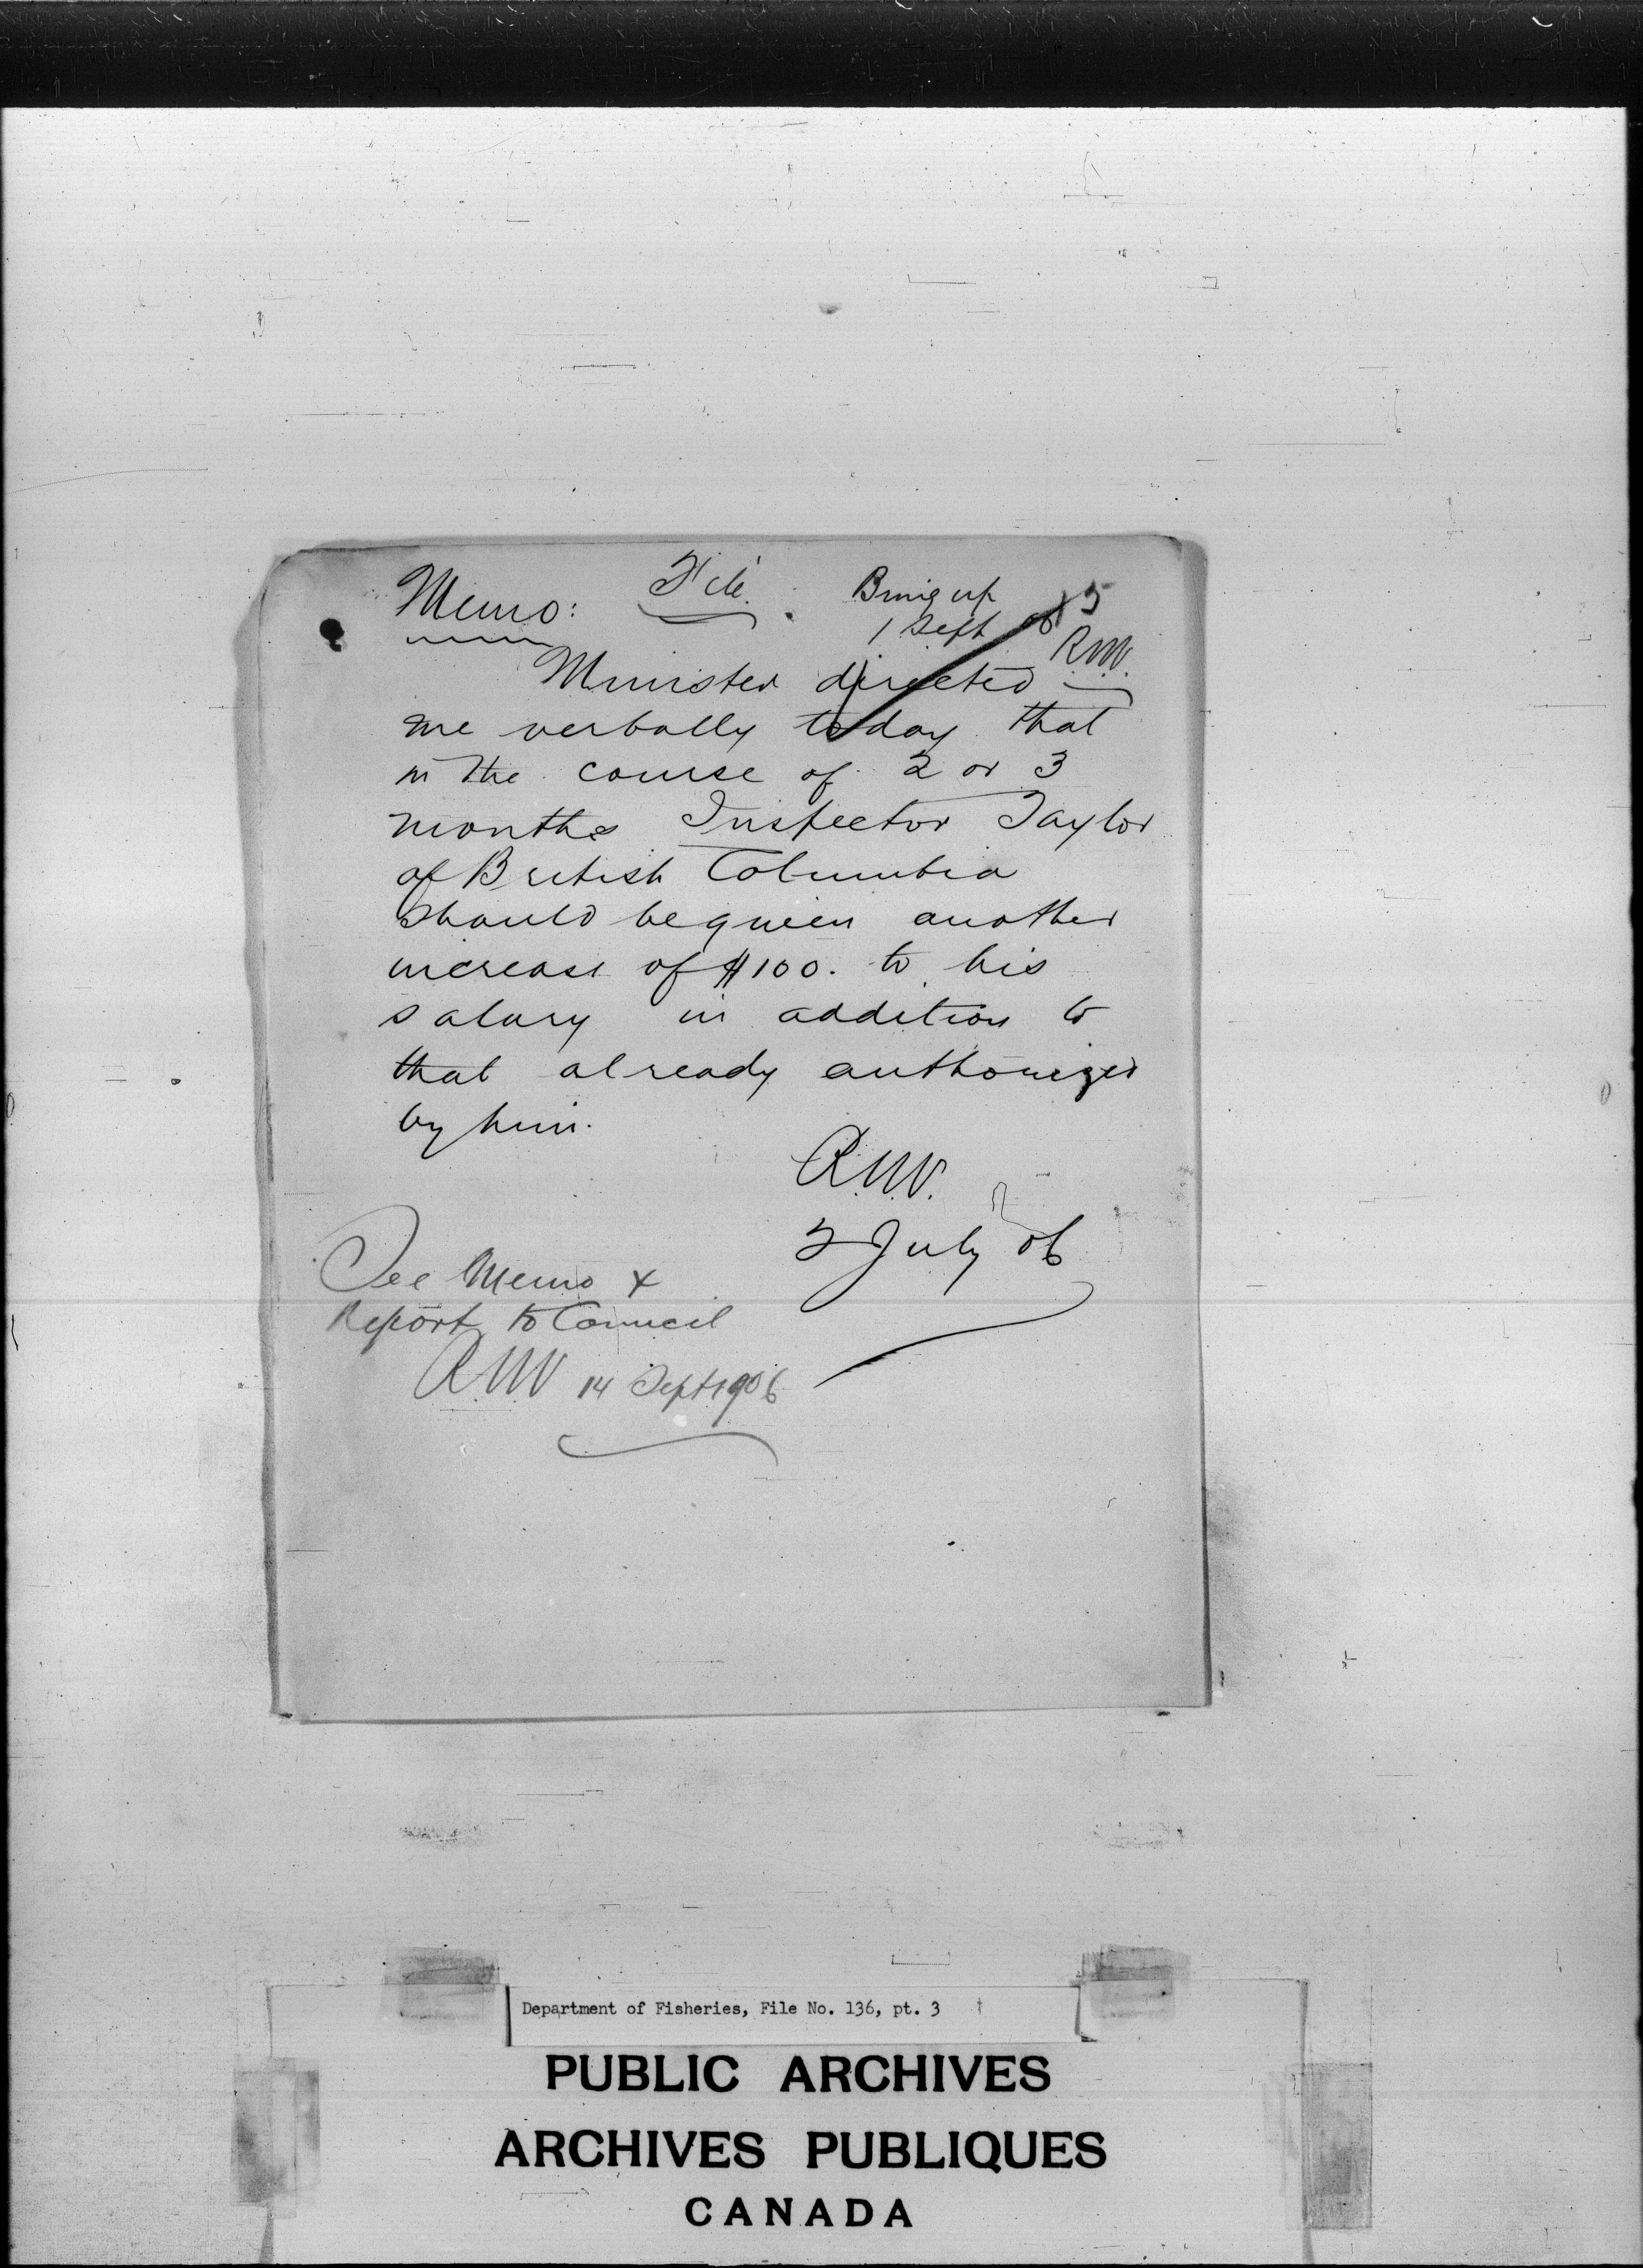 Memo: File. Bring up
1 Sept 06 85
R.N.V.
Minister directed
me verbally today that
in the course of 2 or 3
months Inspector Taylor
of British Columbia
should be given another
increase of $100. to his
salary in addition to
that already authorized
by him.
R.N.V.
2 July 06
See Memo &
Report to Council
R.N.V. 14 Sept 1906
Department of Fisheries, File No. 136, pt. 3
PUBLIC ARCHIVES
ARCHIVES PUBLIQUES
CANADA